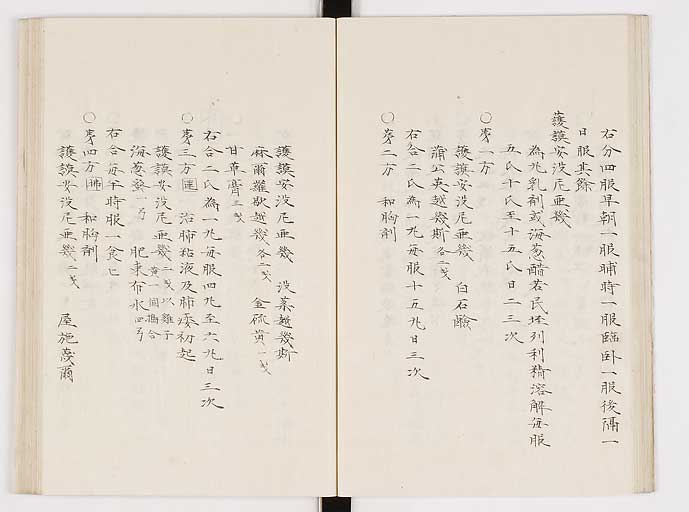 右分四服早朝一服晡時一服臨臥一服後隔一
日服其餘
護謨安没尼亜幾
為丸乳剤或海葱醋若民垤列利精溶解毎服
五氏十氏至十五氏日二三次
〇第一方
護謨安没尼亜幾　白石鹸
蒲公英越幾斯各二戔
右合二氏為一丸毎服十五丸日三次
〇第二方　和胸剤
護謨安没尼亜幾　没薬越幾斯
麻爾羅歇越幾各二戔　金硫黄一戔
甘草膏三戔
右合二氏為一丸毎服四丸至六丸日三次
〇第三方　治肺粘液及肺痿初起
護謨安没尼亜幾二戔以雞子黄一箇搗合
海葱蜜一　肥皂布水四
右合毎午時服一食匕
〇第四方　和胸剤
護謨安没尼亜幾二戔　屋施茂爾